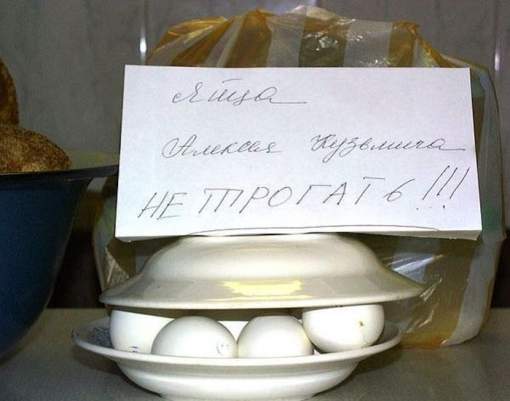 Яйца
Алексея Кузьмича
НЕ ТРОГАТЬ!!!